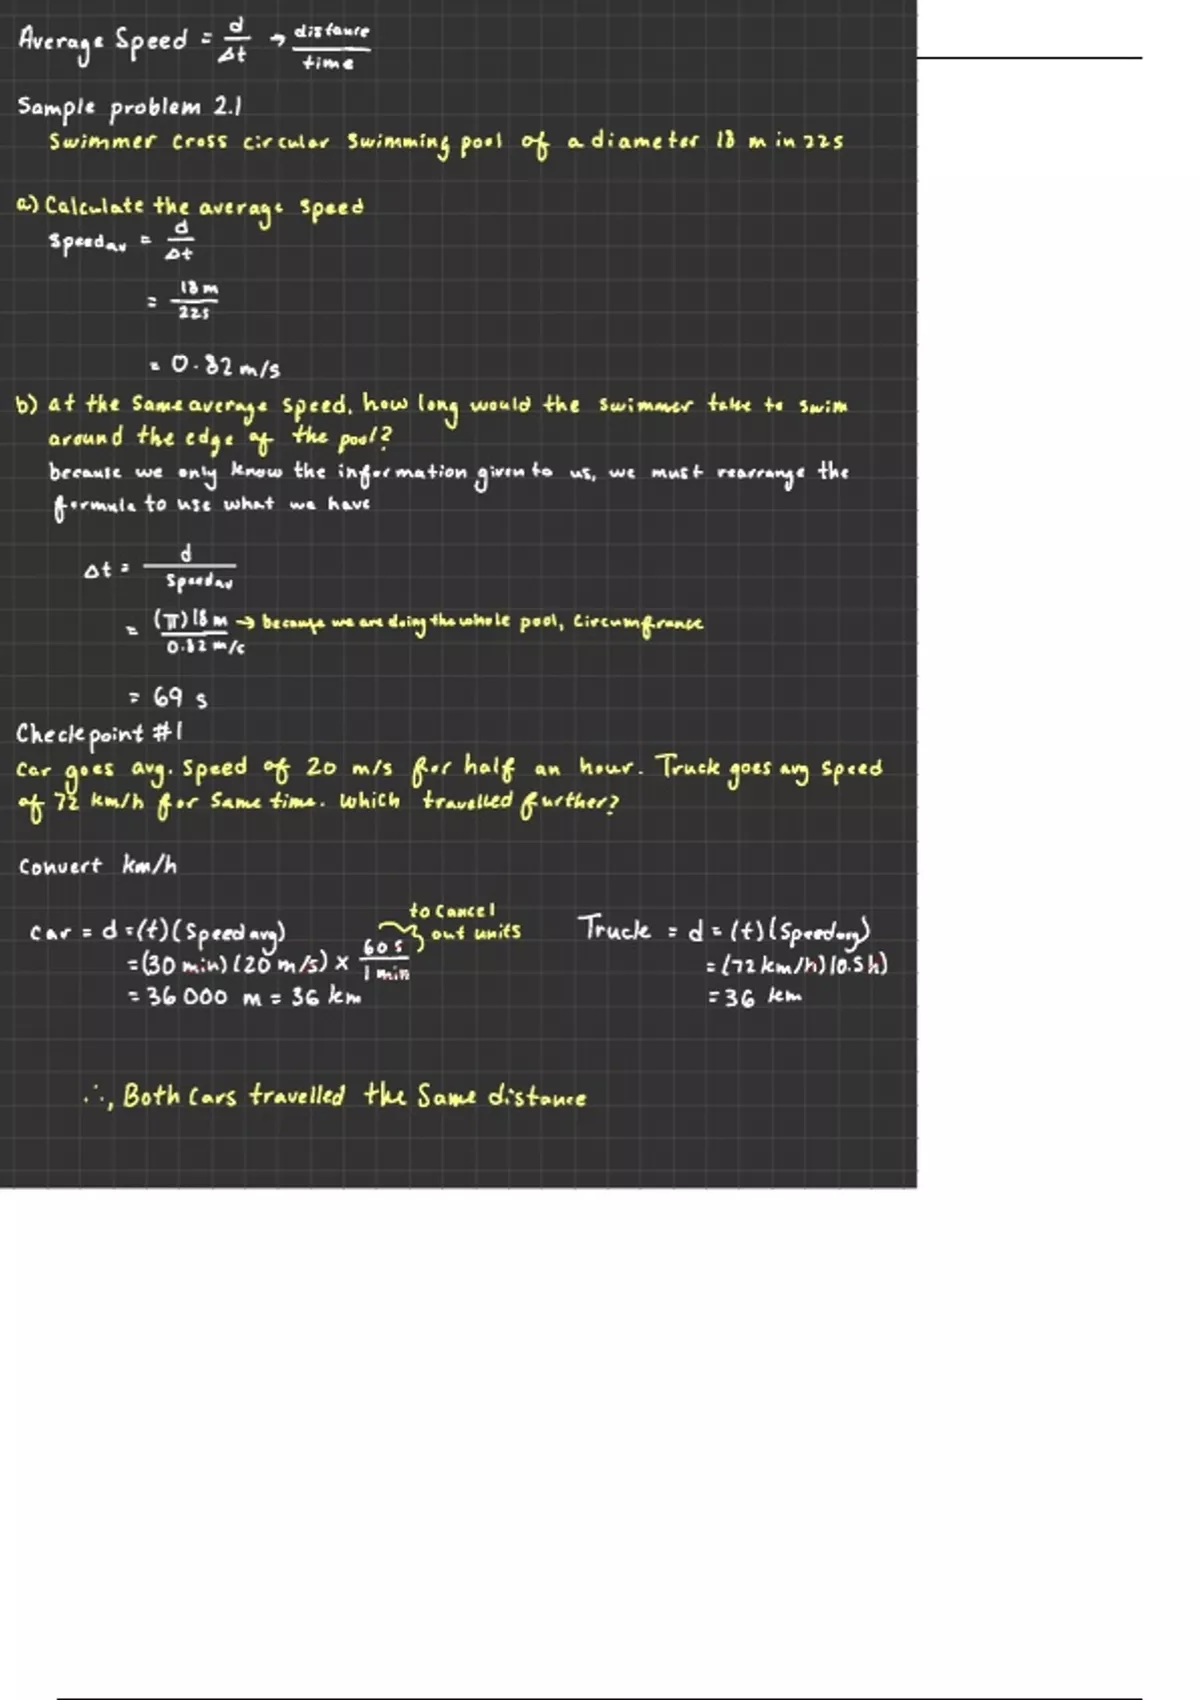 Average Speed = d/Δt → distance/time
Sample problem 2.1
Swimmer cross circular swimming pool of a diameter 18 m in 22s
a) Calculate the average speed
speedav = d/Δt
= 18 m/22s
= 0.82 m/s
b) at the same average speed, how long would the swimmer take to swim
around the edge of the pool?
because we only know the information given to us, we must rearrange the
formula to use what we have
Δt = d/speedav
= (π) 18 m/0.82 m/s → because we are doing the whole pool, circumfrance
= 69 s
Checkpoint #1
Car goes avg. speed of 20 m/s for half an hour. Truck goes avg speed
of 72 km/h for same time. Which travelled further?
Convert km/h
to cancel
out units
Car = d = (t)(speed avg)
= (30 min)(20 m/s) × 60 s/1 min
= 36 000 m = 36 km
Truck = d = (t)(speedavg)
= (72 km/h)(0.5 h)
= 36 km
∴, Both cars travelled the same distance